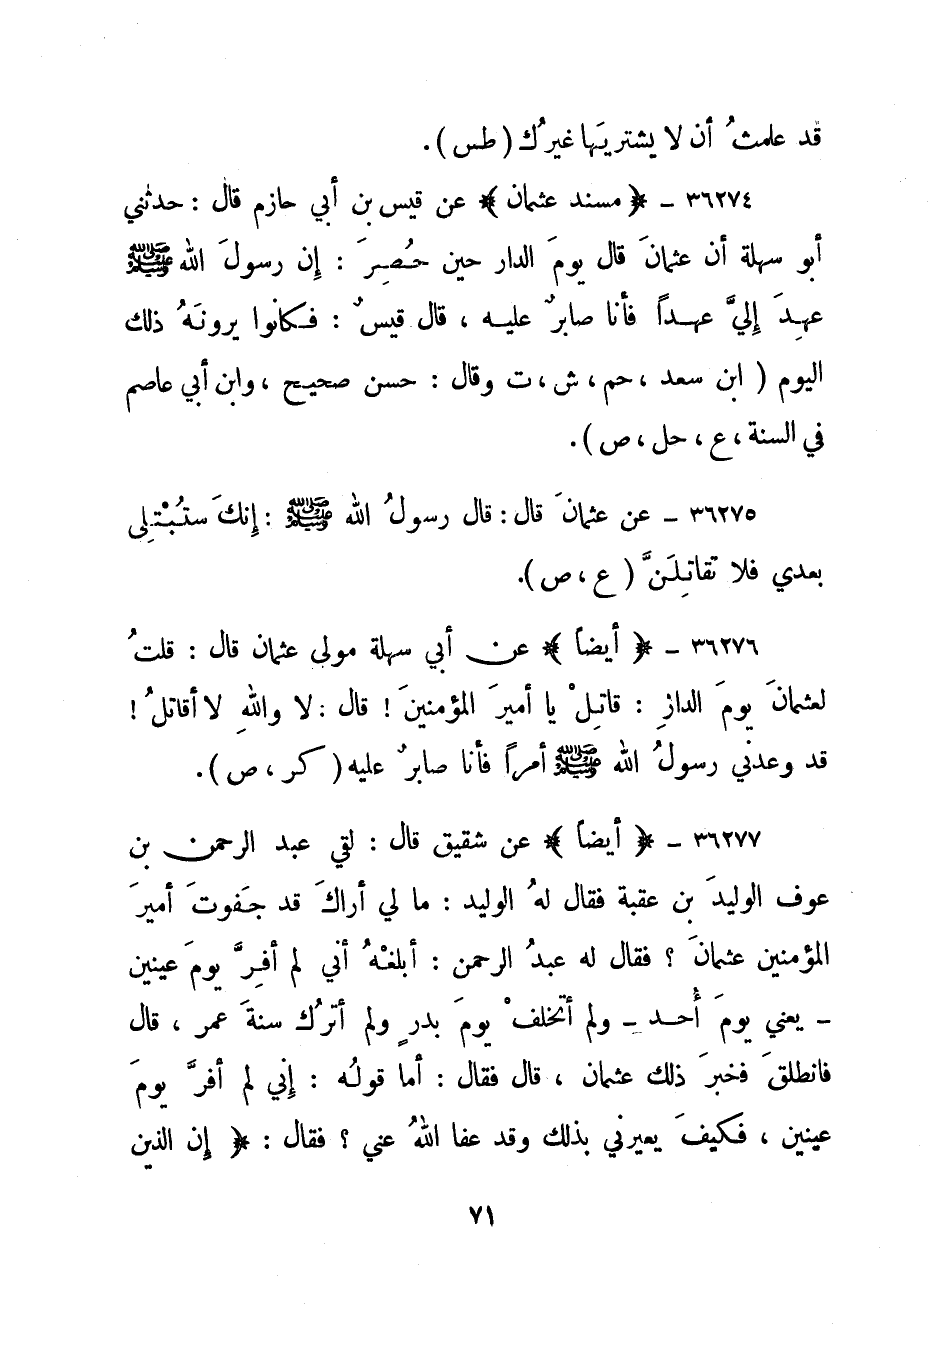 قد علمتُ أن لا يشتريَها غيرُك (طس).
٣٦٢٧٤ – ﴿ مسند عثمان ﴾ عن قيس بن أبي حازم قال : حدثني
أبو سهلة أن عثمانَ قال يومَ الدار حين حُصِرَ : إن رسولَ الله ﷺ
عهِدَ إليَّ عهداً فأنا صابرٌ عليه ، قال قيسٌ : فكانوا يرونَهُ ذلك
اليوم ( ابن سعد ، حم ، ش ، ت وقال : حسن صحيح ، وابن أبي عاصم
في السنة ، ع ، حل ، ص ).
٣٦٢٧٥ – عن عثمانَ قال : قال رسولُ الله ﷺ : إنكَ ستُبْتلى
بعدي فلا تقاتِلَنَّ ( ع ، ص ).
٣٦٢٧٦ – ﴿ أيضاً ﴾ عن أبي سهلة مولى عثمان قال : قلتُ
لعثمانَ يومَ الدارِ : قاتِلْ يا أميرَ المؤمنينَ ! قال : لا واللهِ لا أقاتلُ !
قد وعدني رسولُ الله ﷺ أمراً فأنا صابرٌ عليه ( كر ، ص ).
٣٦٢٧٧ – ﴿ أيضاً ﴾ عن شقيق قال : لقي عبد الرحمن بن
عوف الوليدَ بن عقبة فقال لهُ الوليد : ما لي أراكَ قد جَفوتَ أميرَ
المؤمنين عثمانَ ؟ فقال له عبدُ الرحمن : أبلغْهُ أني لم أفِرَّ يومَ عينين
– يعني يومَ أُحد – ولم أتخلفْ يومَ بدرٍ ولم أتركْ سنةَ عمر ، قال
فانطلقَ فخبرَ ذلك عثمان ، قال فقال : أما قولُه : إني لم أفرَّ يومَ
عينين ، فكيفَ يعيرني بذلك وقد عفا اللهُ عني ؟ فقال : ﴿ إن الذين
٧١